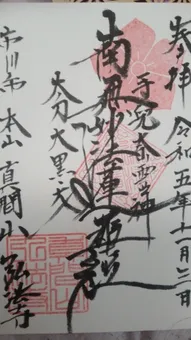 奉拝 令和五年十一月三日
手児奈霊神
南無妙法蓮華経
太刀大黒天
市川市 本山 真間山 弘法寺